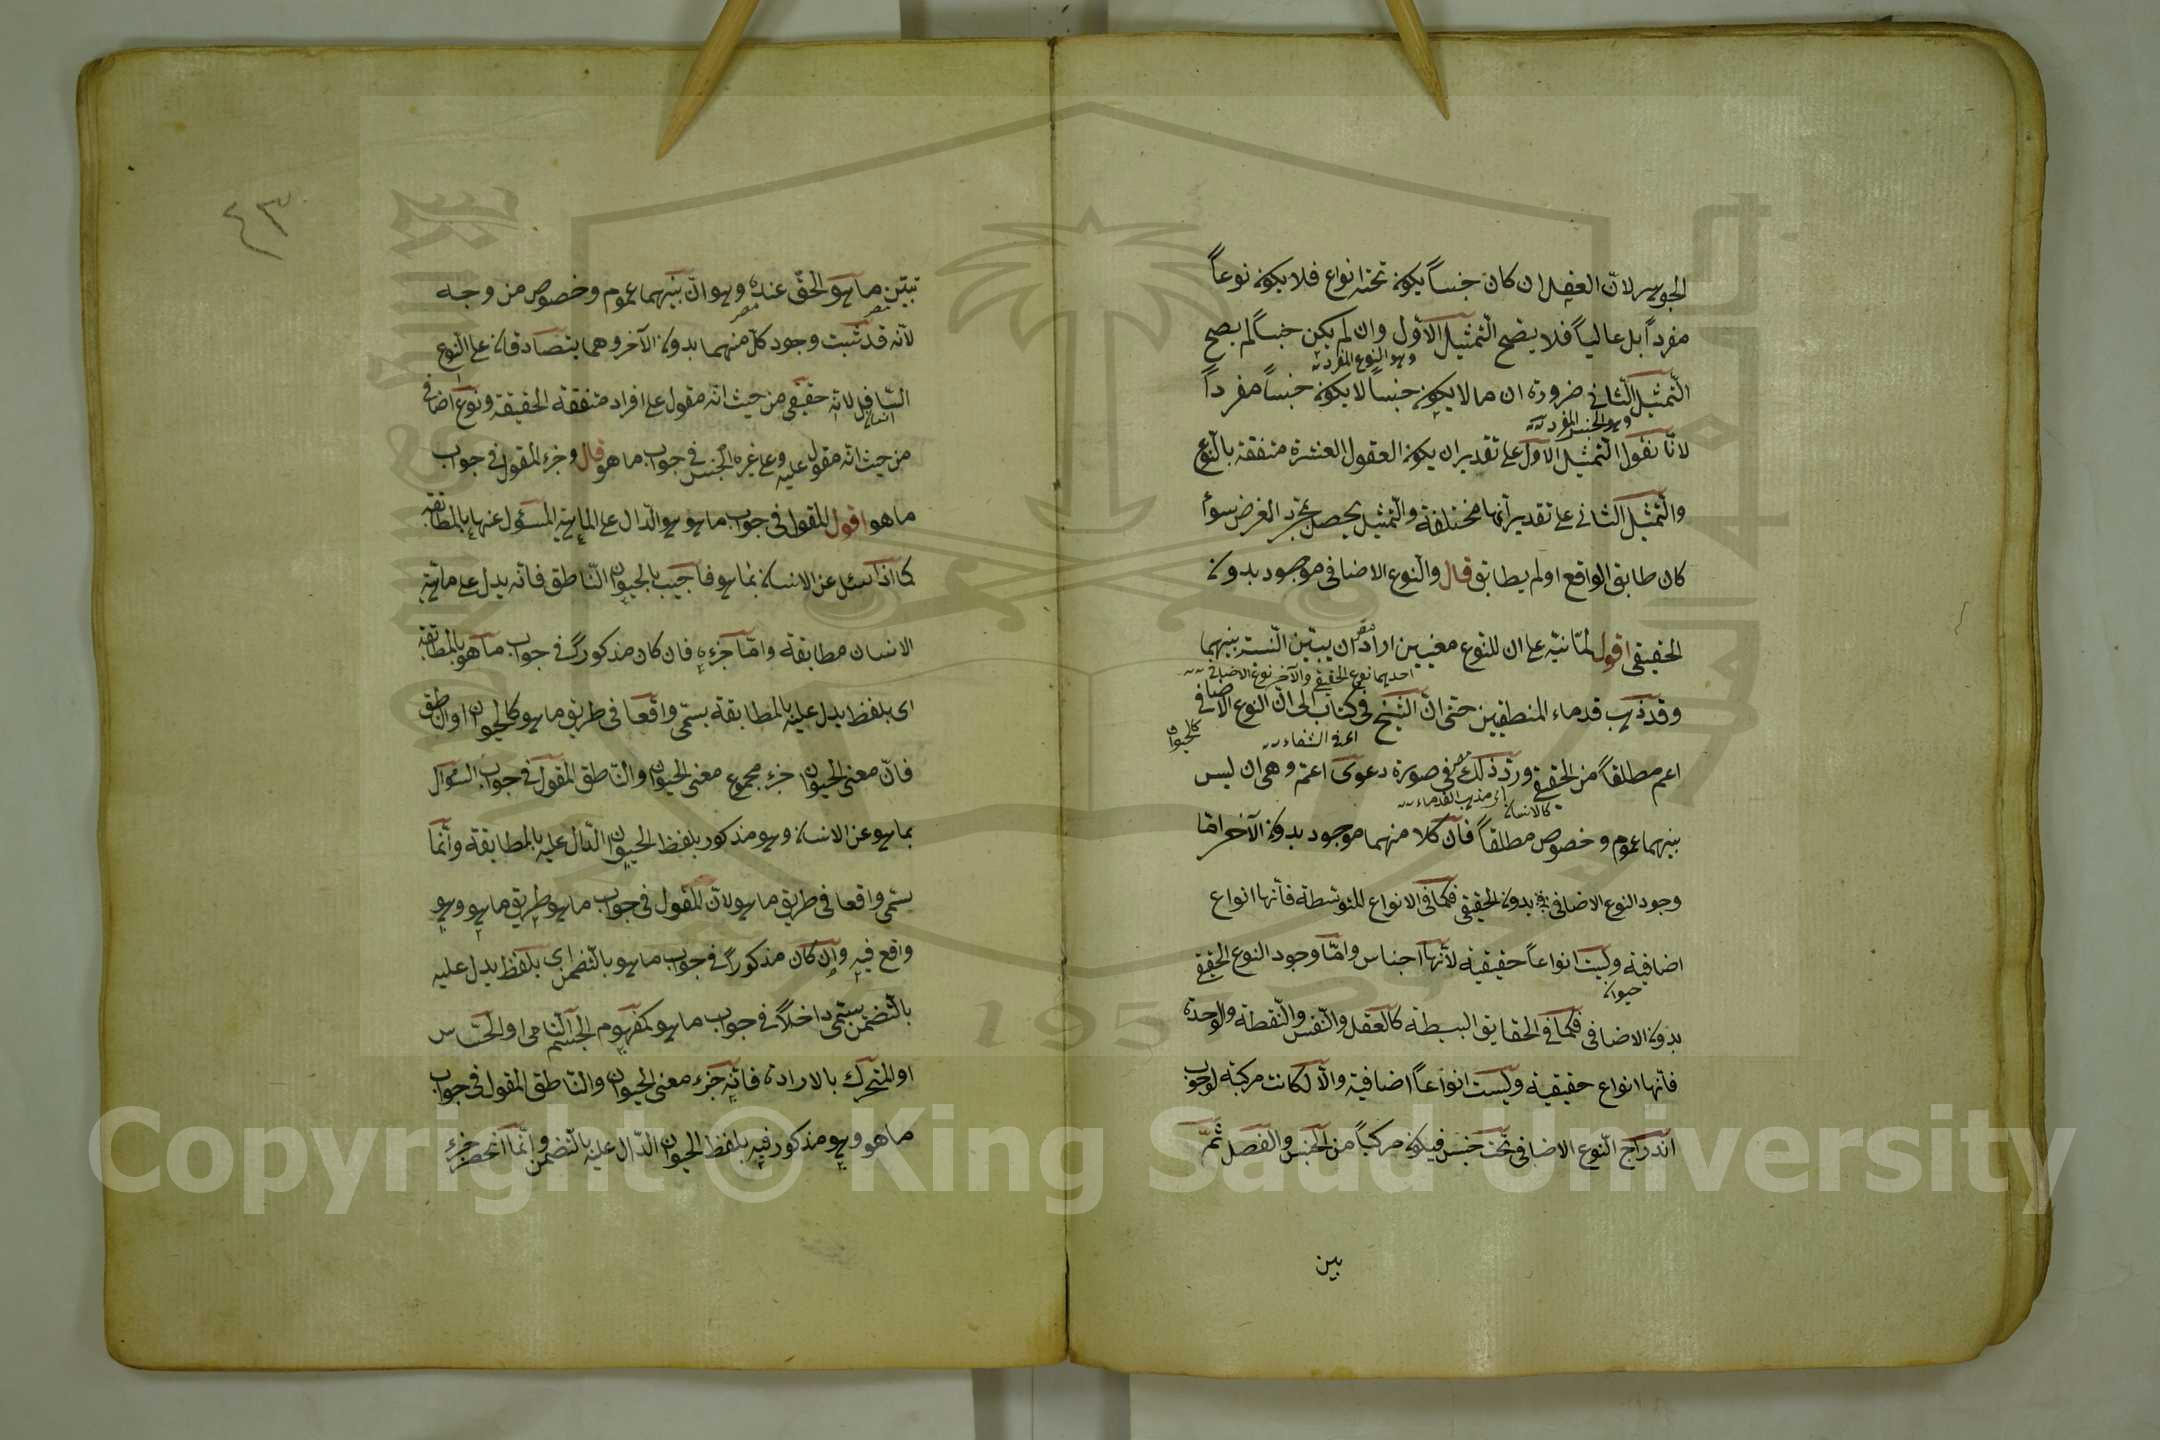 الجوهر لانّ العقل ان كان جنساً يكون تحته انواع فلا يكون نوعاً
مفرداً بل عالياً فلا يصح التمثيل الاوّل وان لم يكن جنساً لم يصح
وهو النوع المفرد
التّمثيل الثّانى ضرورة ان ما لا يكون جنساً لا يكون جنساً مفرداً
وهو الجنس المفرد
لانّا نقول التّمثيل الاوّل على تقدير ان يكون العقول العشرة متفقة بالنّوع
والتّمثيل الثانى على تقدير انّها مختلفة والتّمثيل يحصل بمجرّد الفرض سواءً
كان طابق الواقع او لم يطابق قال والنّوع الاضافى موجود بدون
الحقيقى اقول لمّا نبّه على ان للنّوع معنيين اراد ان يبيّن النّسبة بينهما
احدهما نوع الحقيقى والآخر نوع الاضافى
وقد ذهب قدماء المنطقيين حتى انّ الشّيخ فى كتاب الى انّ النوع الاضافى
اعنى الشفاء
كالحيوان
اعم مطلقاً من الحقيقى وردّ ذلك فى صورة دعوى اعمّ وهى ان ليس
اى مذهب القدماء
كالانسان
بينهما عموم وخصوص مطلقاً فانّ كلا منهما موجود بدون الآخر امّا
وجود النوع الاضافى بدون الحقيقى فكما فى الانواع المتوسّطة فانّها انواع
اضافية وليست انواعاً حقيقية لأنّها اجناس وامّا وجود النوع الحقيقى
حيوان
بدون الاضافى فكما فى الحقايق البسيطة كالعقل والنّفس والنّقطة والوحدة
فانّها انواع حقيقية وليست انواعاً اضافية والّا لكانت مركبة لوجوب
اندراج النّوع الاضافى تحت جنس فيكون مركباً من الجنس والفصل ثمّ
بين
٤٣
تبيّن ما هو الحقّ عنده وهو انّ بينهما عموم وخصوص من وجه
لأنّه قد ثبت وجود كلّ منهما بدون الآخر وهما يتصادقان على النّوع
السّافل لانّه حقيقى من حيث انّه مقول على افراد متفقة الحقيقة ونوع اضافى
من حيث انّه مقول عليه وعلى غيره الجنس فى جواب ما هو قال وجزء المقول فى جواب
ما هو اقول المقول فى جواب ما هو هو الدّال على الماهيّة المسئول عنها بالمطابقة
كما اذا سئل عن الانسان بما هو فاجيب بالحيوان النّاطق فانّه يدل على ماهيّة
الانسان مطابقة وامّا جزءه فان كان مذكوراً فى جواب ما هو بالمطابقة
اى بلفظ يدل عليه بالمطابقة يسمّى واقعا فى طريق ما هو كالحيوان او الناطق
فانّ معنى الحيوان جزء مجموع معنى الحيوان والنّاطق المقول فى جواب السّؤال
بما هو عن الانسان وهو مذكور بلفظ الحيوان الدّال عليه بالمطابقة وانّما
يسمّى واقعا فى طريق ما هو لانّ المقول فى جواب ما هو طريق ما هو وهو
واقع فيه وان كان مذكوراً فى جواب ما هو بالتّضمن اى بلفظ يدل عليه
بالتّضمن يسمّى داخلاً فى جواب ما هو كمفهوم الجسم النّامى او الحسّاس
او المتحرّك بالارادة فانّه جزء معنى الحيوان والنّاطق المقول فى جواب
ما هو وهو مذكور فيه بلفظ الحيوان الدّال عليه بالتّضمن وانّما انحصر جزء
Copyright © King Saud University